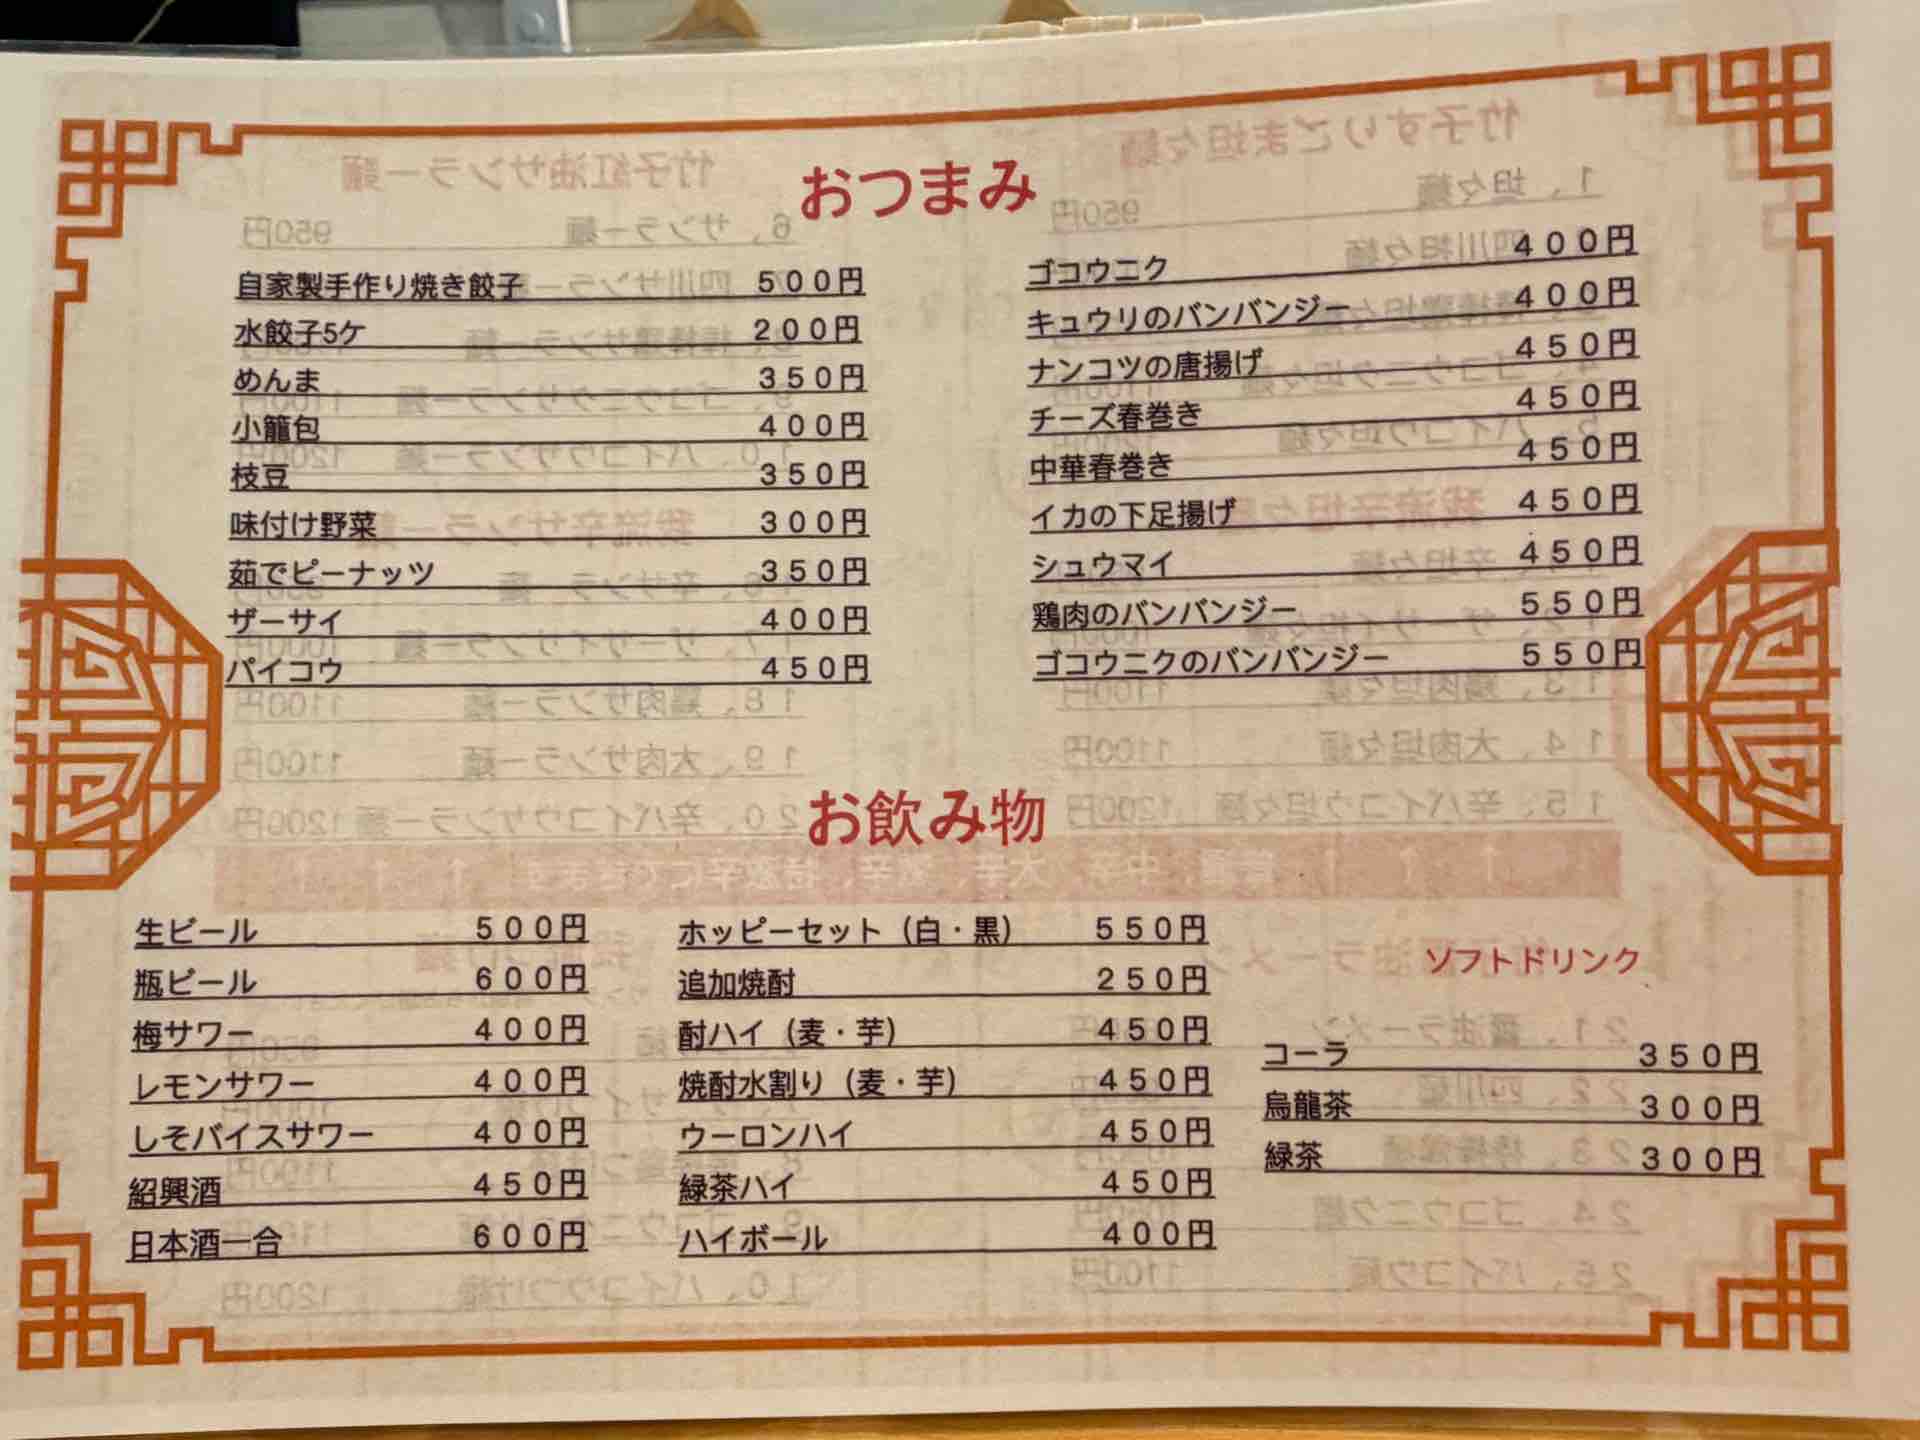 おつまみ
自家製手作り焼き餃子 500円
水餃子5ケ 200円
めんま 350円
小籠包 400円
枝豆 350円
味付け野菜 300円
茹でピーナッツ 350円
ザーサイ 400円
パイコウ 450円
ゴコウニク 400円
キュウリのバンバンジー 400円
ナンコツの唐揚げ 450円
チーズ春巻き 450円
中華春巻き 450円
イカの下足揚げ 450円
シュウマイ 450円
鶏肉のバンバンジー 550円
ゴコウニクのバンバンジー 550円
お飲み物
生ビール 500円
瓶ビール 600円
梅サワー 400円
レモンサワー 400円
しそバイスサワー 400円
紹興酒 450円
日本酒一合 600円
ホッピーセット（白・黒） 550円
追加焼酎 250円
酎ハイ（麦・芋） 450円
焼酎水割り（麦・芋） 450円
ウーロンハイ 450円
緑茶ハイ 450円
ハイボール 400円
ソフトドリンク
コーラ 350円
烏龍茶 300円
緑茶 300円